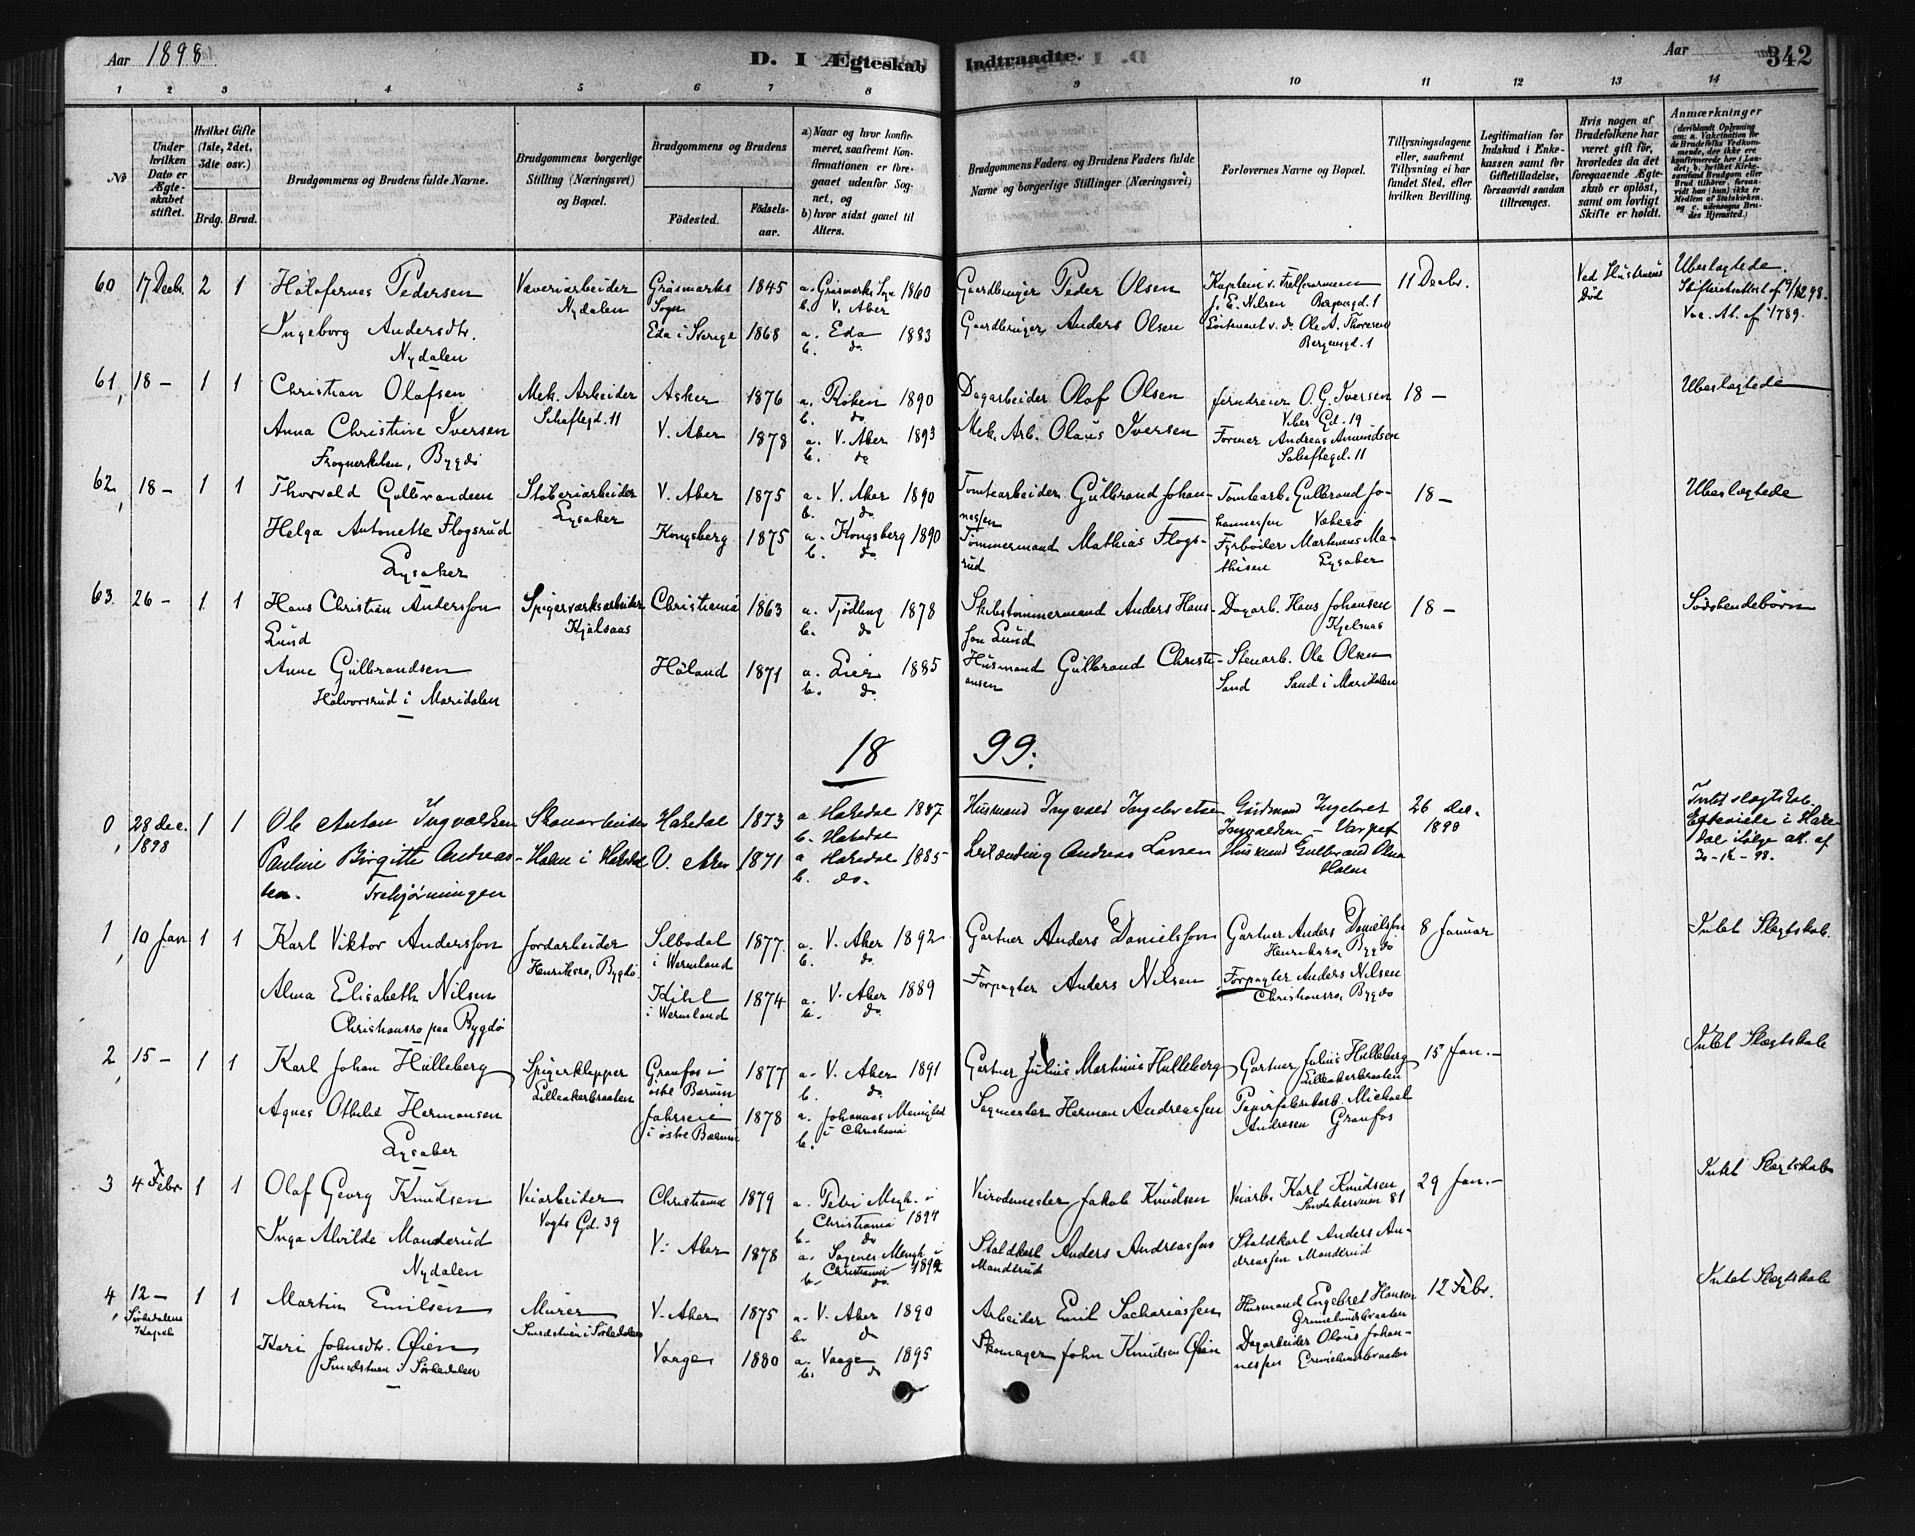 Aar 1898. D. I Ægteskab Indtraadte. Aar 342
1 2 3 4 5 6 7 8 9 10 11 12 13 14
No
Under hvilken Dato er Ægteskabet stiftet.
Hvilket Gifte (1ste, 2det, 3die osv.)
Brdg. Brud.
Brudgommens og Brudens fulde Navne.
Brudgommens borgerlige Stilling (Næringsvei) og Bopæl.
Brudgommens og Brudens
Födested. Födselsaar.
a) Naar og hvor konfirmeret, saafremt Konfirmationen er foregaaet udenfor Sognet, og
b) hvor sidst gaaet til Alters.
Brudgommens Faders og Brudens Faders fulde Navne og borgerlige Stillinger (Næringsvei)
Forlovernes Navne og Bopæl.
Tillysningsdagene eller, saafremt Tillysning ei har fundet Sted, efter hvilken Bevilling.
Legitimation for Indskud i Enkekassen samt for Giftetilladelse, forsaavidt saadan tiltrænges.
Hvis nogen af Brudefolkene har været gift før, hvorledes da det foregaaende Ægteskab er oplöst, samt om lovligt Skifte er holdt.
Anmærkninger
60 17 Decbr. 2 1 Holofernes Pedersen Væveriarbeider Gräsmarks 1845 a. Gräsmarks Sogn 1860 Gaardbruger Peder Olsen Kaptein v. Frelsesarmeen 11 Decbr. Ved Hustruens Ubeslægtede.
Nydalen Sogn b. V. Aker J. E. Nilsen Bergensgd. 1 Död
Ingeborg Andersdtr. Eda i Sverige 1868 a. Eda 1883 Gaardbruger Anders Olsen Löitenant v. do. Ole A. Thoresen Vac. At. af 1789.
Nydalen b. do Bergensgd. 1
61, 18 – 1 1 Christian Olafsen Mek. Arbeider Asker 1876 a. Röken 1890 Dagarbeider Olaf Olsen Jerndreier O. G. Iversen 18 – Ubeslægtede
Schaftegd. 11 b. do Vibes Gd. 19
Anna Christine Iversen V. Aker 1878 a. V. Aker 1893 Mek. Arb. Olaus Iversen Former Andreas Amundsen
Frognerkilen, Bygdö b. do Schaftegd. 11
62, 18 – 1 1 Thorvald Gulbrandsen Stöberiarbeider V. Aker 1875 a. V. Aker 1890 Tomtearbeider Gulbrand Johan- Tomtearb. Gulbrand Jo- 18 – Ubeslægtede
Lysaker b. do nessen hannessen Vækerö
Helga Antonette Flogsrud Kongsberg 1875 a. Kongsberg 1890 Tömmermand Mathias Flogs- Fyrböder Martinus Ma-
Lysaker b. do rud thisen Lysaker
63. 26 – 1 1 Hans Christian Andersson Spigerværksarbeider Christiania 1863 a. Tjödling 1878 Skibstömmermand Anders Hans- Dagarb. Hans Johansen 18 – Södskendebörn
Lund Kjelsaas b. do son Lund Kjelsaas
Anne Gulbrandsen Höland 1871 a. Lier 1885 Husmand Gulbrand Christi- Stenarb. Ole Olsen
Halvorsrud i Maridalen b. do ansen Sand Sand i Maridalen
18 99.
0 28 dec. 1898 1 1 Ole Anton Ingvaldsen Skovarbeider Hakedal 1873 a. Hakedal 1887 Husmand Ingvald Ingebretsen Husmand Ingebret 26 dec. 1898 Intet slægtskab.
b. Hakedal Ingvaldsen – Varpet Egteviede i Hake-
Pauline Birgitte Andreas- Holm i Hakedal V. Aker 1871 a Hakedal 1885 Leilænding Andreas Larsen Husmand Gulbrand Olsen dal ifølge att. af
sen. Trehjørningen b. do. Holm 30-12-98.
1, 10 Jan 1 1 Karl Viktor Andersson Jordarbeider Silbodal 1877. a. V. Aker 1892 Gartner Anders Danielsson Gartner Anders Danielsson 8 Januar Intet Slægtskab.
Henriksro, Bygdö i Wermland b. do Henriksro, Bygdö
Alma Elisabeth Nilsen Kihl 1874 a. V. Aker 1889 Forpagter Anders Nilsen Forpagter Anders Nilsen
Christiansro paa Bygdö i Wermland b. do. Christiansro, Bygdö
2, 15 – 1 1 Karl Johan Hulleberg Spigerklipper Granfos i 1877 a. V. Aker 1891 Gartner Julius Martinius Hulleberg Gartner Julius Hulleberg 15 Jan. – Intet Slægtskab
Lilleakerbraaten östre Bærum b. do Lilleakerbraaten
Agnes Othilie Hermansen i östre Bærum 1878 a. Johannes Menighed Sagmester Herman Andreassen Papirfabrikarb. Michael
Lysaker b. i Christiania Andresen Granfos
3 4 Febr. 1 1 Olaf Georg Knudsen Veiarbeider Christiania 1879 a. Petri Megh. i Veirodemester Jakob Knudsen Veiarb. Karl Knudsen 29 Jan. – Intet Slægtskab
Vogts Gd. 39 Christiania 1894 Sandakerveien 81
b. do
Inga Alvilde Manderud V. Aker 1878 a. Sagenes Mengh. i Staldkarl Anders Andreassen Staldkarl Anders An-
Nydalen Christiania 1892 Manderud dreassen Manderud
b. do.
4, 12 – 1 1 Martin Emilsen Murer V. Aker 1875 a. V. Aker 1890 Arbeider Emil Sachariassen Husmand Engebret Hansen 12 Febr. Intet Slægtskab
Sörkedalens Kapel Smedstuen i Sörkedalen b. do Grimelundsbraaten
Kari Johnsdtr. Öien Vaage 1880 a. Vaage 1895 Skomager John Knudsen Öien Dagarbeider Olaus Johan-
Smedstuen i Sörkedalen b. do nessen